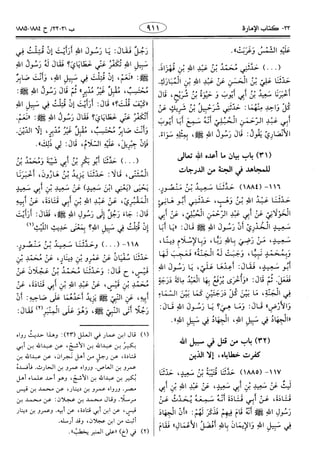 ٣٣- كتاب الإمارة
٩١١
ب ٣١-٣٢/ ح ١٨٨٤-١٨٨٥
عَلَيْهِ الشَّمْسُ وَغَرَبَتْ».
(...) حَدَّثَنِي مُحَمَّدُ بْنُ عَبْدِ اللهِ بْنِ قُهْزَاذَ.
حَدَّثَنَا عَلِيُّ بْنُ الْحَسَنِ عَنْ عَبْدِ اللهِ بْنِ الْمُبَارَكِ.
أَخْبَرَنَا سَعِيدُ بْنُ أَبِي أَيُّوبَ وَ حَيْوَةُ بْنُ شُرَيْحٍ. قَالَ
كُلُّ وَاحِدٍ مِنْهُمَا: حَدَّثَنِي شُرَحْبِيلُ بْنُ شَرِيكٍ عَنْ
أَبِي عَبْدِ الرَّحْمٰنِ الْحُبُلِيِّ أَنَّهُ سَمِعَ أَبَا أَيُّوبَ
الْأَنْصَارِيَّ يَقُولُ: قَالَ رَسُولُ اللهِ ﷺ، بِمِثْلِهِ سَوَاءً.
(٣١) باب بيان ما أعده الله تعالى
للمجاهد في الجنة من الدرجات
١١٦- (١٨٨٤) حَدَّثَنَا سَعِيدُ بْنُ مَنْصُورٍ.
حَدَّثَنَا عَبْدُ اللهِ بْنُ وَهْبٍ، حَدَّثَنِي أَبُو هَانِئٍ
الْخَوْلَانِيُّ عَنْ أَبِي عَبْدِ الرَّحْمٰنِ الْحُبُلِيِّ، عَنْ أَبِي
سَعِيدٍ الْخُدْرِيِّ أَنَّ رَسُولَ اللهِ ﷺ قَالَ: «يَا أَبَا
سَعِيدٍ، مَنْ رَضِيَ بِاللهِ رَبًّا، وَبِالْإِسْلَامِ دِينًا،
وَبِمُحَمَّدٍ نَبِيًّا، وَجَبَتْ لَهُ الْجَنَّةُ» فَعَجِبَ لَهَا
أَبُو سَعِيدٍ، فَقَالَ: أَعِدْهَا عَلَيَّ، يَا رَسُولَ اللهِ
فَفَعَلَ. ثُمَّ قَالَ: «وَأُخْرَى يُرْفَعُ بِهَا الْعَبْدُ مِائَةَ دَرَجَةٍ
فِي الْجَنَّةِ، مَا بَيْنَ كُلِّ دَرَجَتَيْنِ كَمَا بَيْنَ السَّمَاءِ
وَالْأَرْضِ» قَالَ: وَمَا هِيَ؟ يَا رَسُولَ اللهِ قَالَ:
«الْجِهَادُ فِي سَبِيلِ اللهِ، الْجِهَادُ فِي سَبِيلِ اللهِ».
(٣٢) باب من قتل في سبيل الله
كفرت خطاياه، إلا الدين
١١٧- (١٨٨٥) حَدَّثَنَا قُتَيْبَةُ بْنُ سَعِيدٍ، حَدَّثَنَا
لَيْثٌ عَنْ سَعِيدِ بْنِ أَبِي سَعِيدٍ، عَنْ عَبْدِ اللهِ بْنِ
أَبِي قَتَادَةَ، عَنْ أَبِي قَتَادَةَ أَنَّهُ سَمِعَهُ يُحَدِّثُ عَنْ
رَسُولِ اللهِ ﷺ أَنَّهُ قَامَ فِيهِمْ فَذَكَرَ لَهُمْ: «أَنَّ الْجِهَادَ
فِي سَبِيلِ اللهِ وَالْإِيمَانَ بِاللهِ أَفْضَلُ الْأَعْمَالِ» فَقَامَ
رَجُلٌ فَقَالَ: يَا رَسُولَ اللهِ أَرَأَيْتَ إِنْ قُتِلْتُ فِي
سَبِيلِ اللهِ تُكَفَّرُ عَنِّي خَطَايَايَ؟ فَقَالَ لَهُ رَسُولُ اللهِ
ﷺ: «نَعَمْ، إِنْ قُتِلْتَ فِي سَبِيلِ اللهِ، وَأَنْتَ صَابِرٌ
مُحْتَسِبٌ، مُقْبِلٌ غَيْرُ مُدْبِرٍ» ثُمَّ قَالَ رَسُولُ اللهِ ﷺ:
«كَيْفَ قُلْتَ؟» قَالَ: أَرَأَيْتَ إِنْ قُتِلْتُ فِي سَبِيلِ اللهِ
أَتُكَفَّرُ عَنِّي خَطَايَايَ؟ فَقَالَ رَسُولُ اللهِ ﷺ: «نَعَمْ،
وَأَنْتَ صَابِرٌ مُحْتَسِبٌ، مُقْبِلٌ غَيْرُ مُدْبِرٍ، إِلَّا الدَّيْنَ.
فَإِنَّ جِبْرِيلَ، عَلَيْهِ السَّلَامُ، قَالَ: لِي ذٰلِكَ».
(...) حَدَّثَنَا أَبُو بَكْرِ بْنُ أَبِي شَيْبَةَ وَمُحَمَّدُ بْنُ
الْمُثَنَّى، قَالَا: حَدَّثَنَا يَزِيدُ بْنُ هَارُونَ، أَخْبَرَنَا
يَحْيَى (يَعْنِي ابْنَ سَعِيدٍ) عَنْ سَعِيدِ بْنِ أَبِي سَعِيدٍ
الْمَقْبُرِيِّ، عَنْ عَبْدِ اللهِ بْنِ أَبِي قَتَادَةَ، عَنْ أَبِيهِ
قَالَ: جَاءَ رَجُلٌ إِلَى رَسُولِ اللهِ ﷺ، فَقَالَ: أَرَأَيْتَ
إِنْ قُتِلْتُ فِي سَبِيلِ اللهِ؟ بِمَعْنَى حَدِيثِ اللَّيْثِ(١)
١١٨- (...) وحَدَّثَنَا سَعِيدُ بْنُ مَنْصُورٍ.
حَدَّثَنَا سُفْيَانُ عَنْ عَمْرِو بْنِ دِينَارٍ، عَنْ مُحَمَّدِ بْنِ
قَيْسٍ، ح قَالَ: وَحَدَّثَنَا مُحَمَّدُ بْنُ عَجْلَانَ عَنْ
مُحَمَّدِ بْنِ قَيْسٍ، عَنْ عَبْدِ اللهِ بْنِ أَبِي قَتَادَةَ، عَنْ
أَبِيهِ، عَنِ النَّبِيِّ ﷺ يَزِيدُ أَحَدُهُمَا عَلَى صَاحِبِهِ: أَنَّ
رَجُلًا أَتَى النَّبِيَّ ﷺ، وَهُوَ عَلَى الْمِنْبَرِ(٢) فَقَالَ:
(١) قال ابن عمار في العلل (٢٣): وهذا حديث رواه
بكير بن عبدالله بن الأشج، عن عبدالله بن أبي
قتادة، عن رجل من أهل نجران، عن عبدالله بن
عمرو بن العاص. ورواه عمرو بن الحارث. فأفسده
عن بكير بن عبدالله بن الأشج، وهو أحد علماء أهل
مصر. ورواه عمرو بن دينار، عن محمد بن قيس
مرسلًا. وقال محمد بن عجلان: عن محمد بن
قيس، عن ابن أبي قتادة، عن أبيه. وعمرو بن دينار
أثبت من ابن عجلان، وقد أرسله.
(٢) في (خ) «على المنبر يخطب».